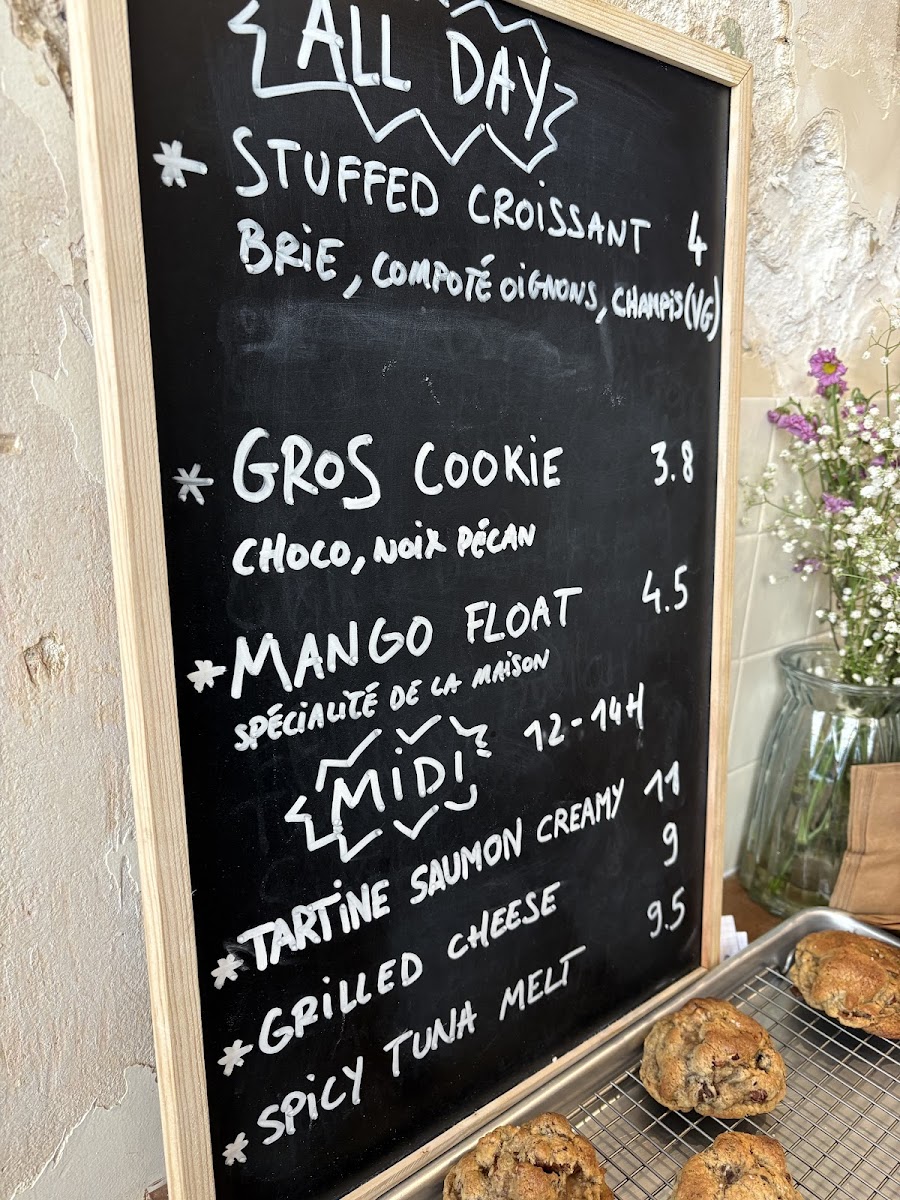 ALL DAY
* STUFFED CROISSANT 4
BRIE, COMPOTÉ OIGNONS, CHAMPIS (VG)
* GROS COOKIE 3.8
CHOCO, NOIX PÉCAN
* MANGO FLOAT 4.5
SPÉCIALITÉ DE LA MAISON
MIDI 12-14H
* TARTINE SAUMON CREAMY 11
* GRILLED CHEESE 9
* SPICY TUNA MELT 9.5